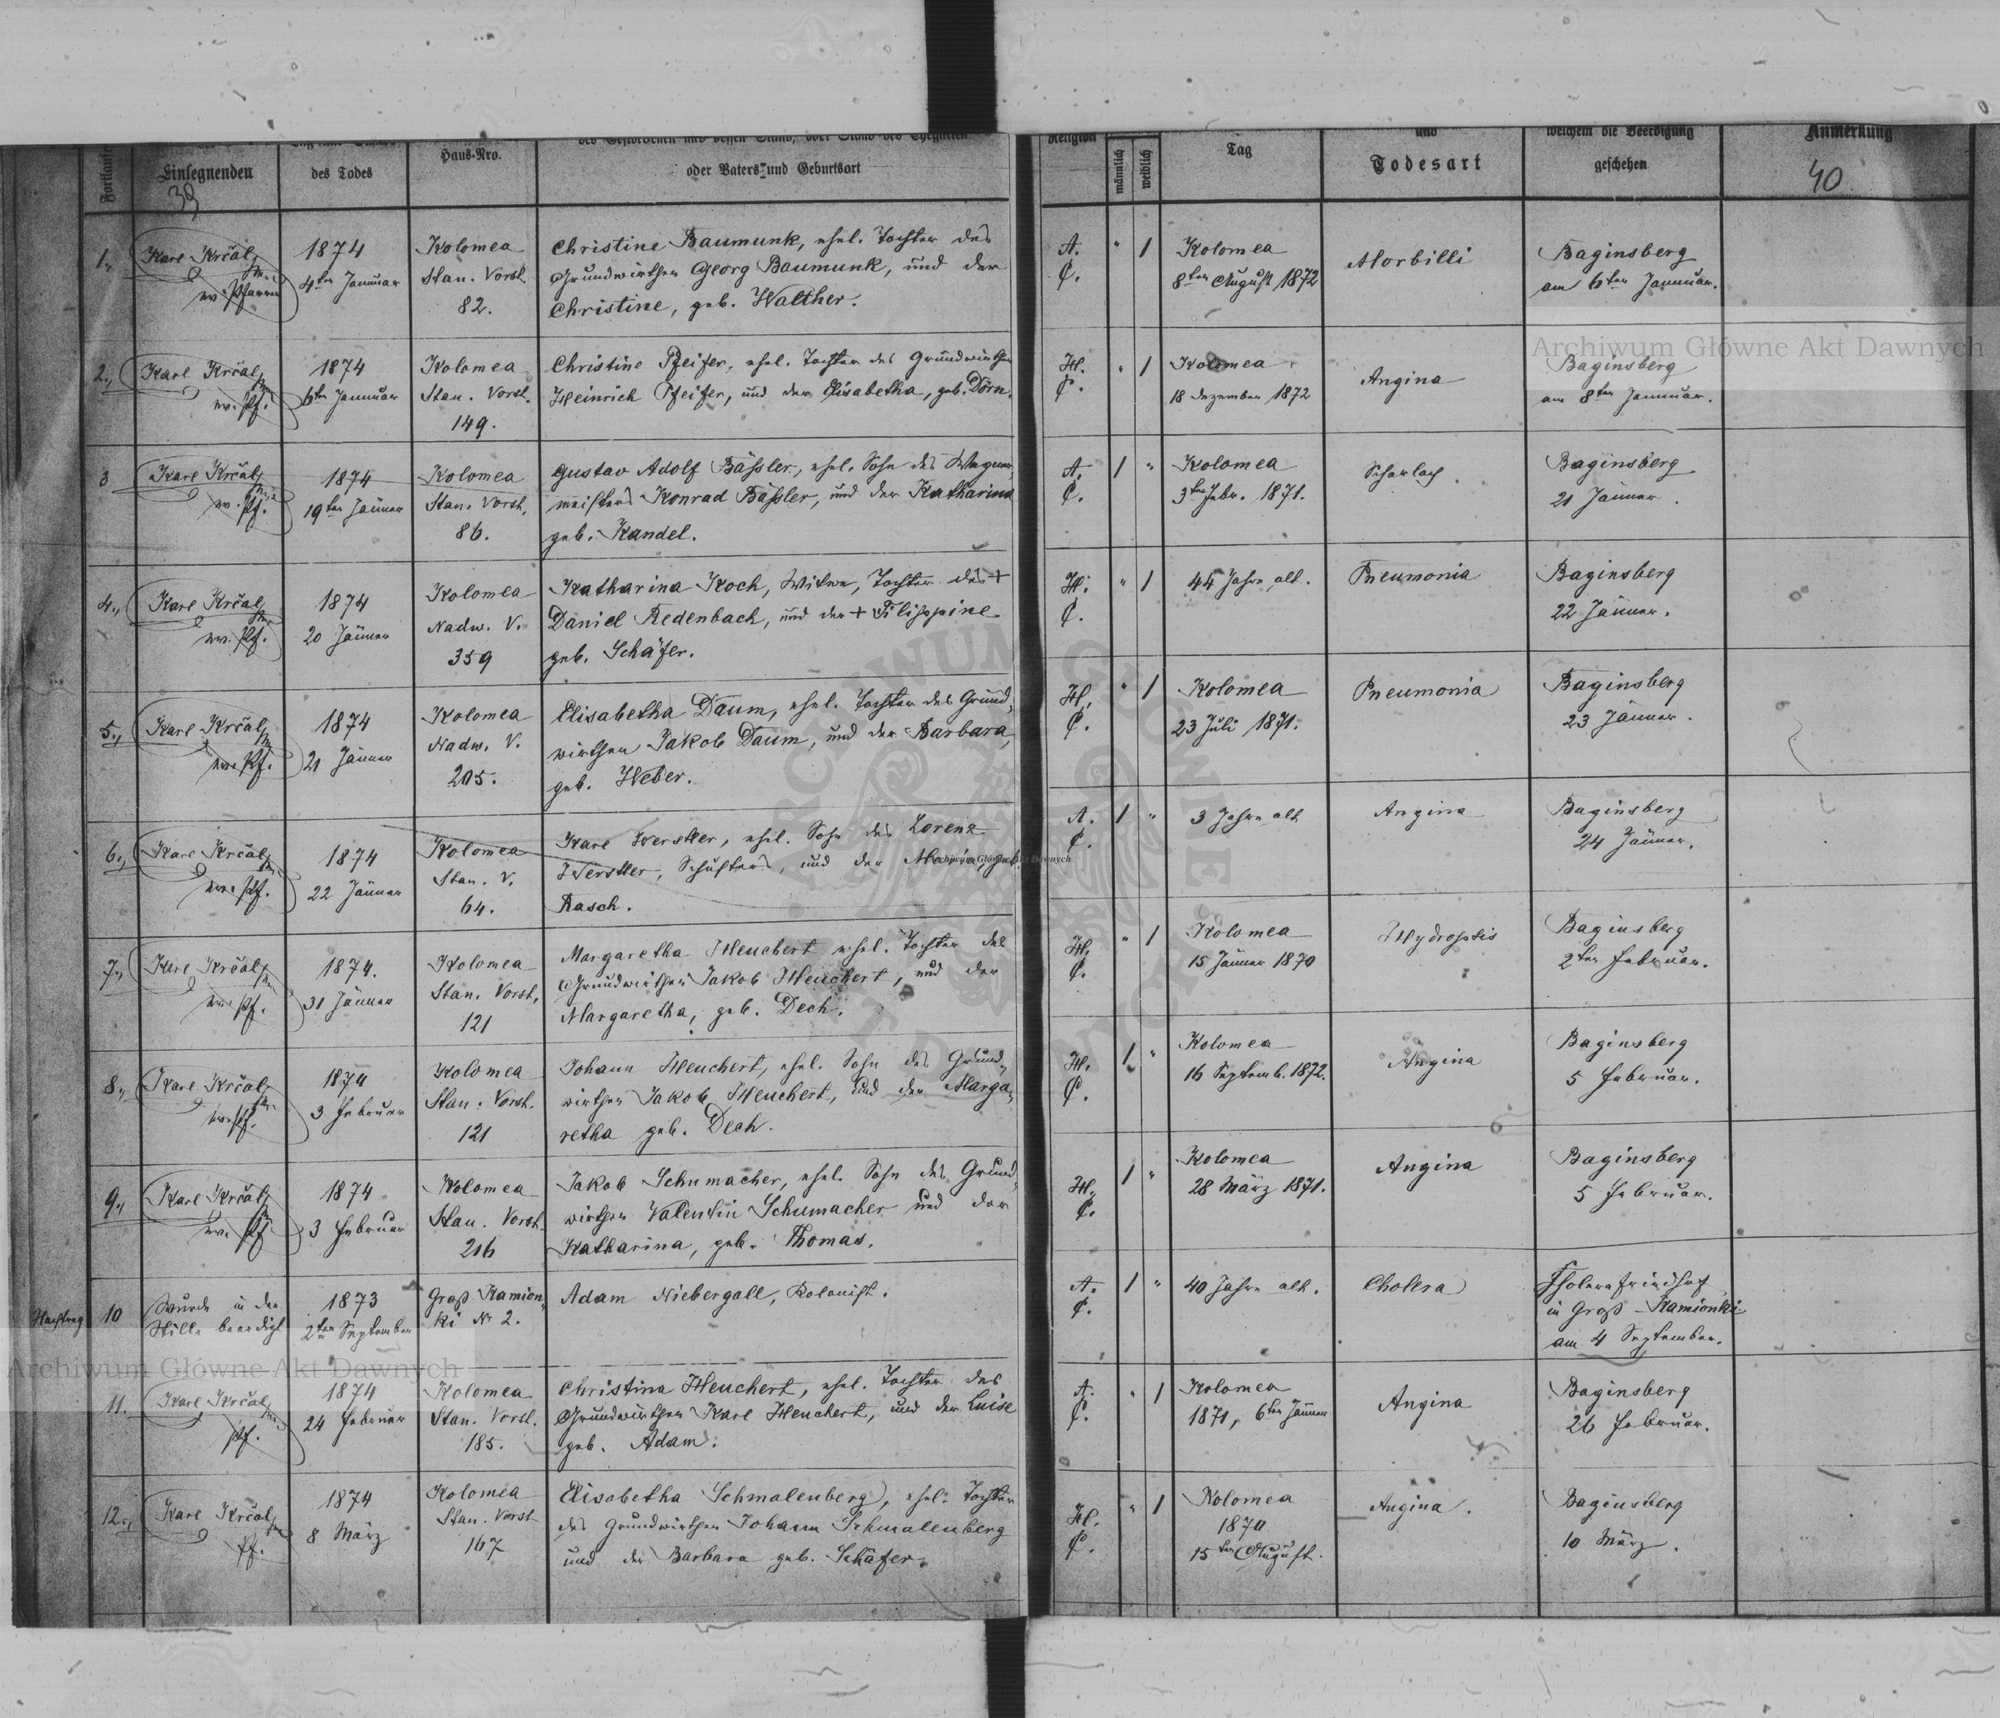 Einsegnenden
des Todes
Haus-Nro.
oder Vaters- und Geburtsort
39
Religion
männlich
weiblich
Tag
und
Todesart
welchem die Beerdigung
geschehen
Anmerkung
40
1., Karl Krčal
ev. Pfarrer
1874
4ten Januar
Kolomea
Stan. Vorst.
82.
Christine Baumunk, ehel. Tochter des
Grundwirthen Georg Baumunk, und der
Christine, geb. Walther.
A.
C.
" 1
Kolomea
8ten August 1872
Morbilli
Baginsberg
am 6ten Januar.
2., Karl Krčal
ev. Pf.
1874
6ten Januar
Kolomea
Stan. Vorst.
149.
Christine Pfeifer, ehel. Tochter des Grundwirthen
Heinrich Pfeifer, und der Elisabetha, geb. Dörn.
H.
C.
" 1
Kolomea
18 Dezember 1872
Angina
Baginsberg
am 8ten Januar.
3 Karl Krčal
ev. Pf.
1874
19ten Jänner
Kolomea
Stan. Vorst.
86.
Gustav Adolf Bäßler, ehel. Sohn des Wagner-
meisters Konrad Bäßler, und der Katharina
geb. Kandel.
A.
C.
1 "
Kolomea
3ten Febr. 1871.
Scharlach
Baginsberg
21 Jänner.
4., Karl Krčal
ev. Pf.
1874
20 Jänner
Kolomea
Nadw. V.
359
Katharina Koch, Witwe, Tochter des +
Daniel Redenbach, und der + Filippine
geb. Schäfer.
H.
C.
" 1
44 Jahre alt.
Pneumonia
Baginsberg
22 Jänner.
5., Karl Krčal
ev. Pf.
1874
21 Jänner
Kolomea
Nadw. V.
205.
Elisabetha Daum, ehel. Tochter des Grund-
wirthen Jakob Daum, und der Barbara,
geb. Weber.
H.
C.
" 1
Kolomea
23 Juli 1871.
Pneumonia
Baginsberg
23 Jänner.
6., Karl Krčal
ev. Pf.
1874
22 Jänner
Kolomea
Stan. V.
64.
Karl Werstler, ehel. Sohn des Lorenz
Werstler, Schusters, und der
Rasch.
A.
C.
1 "
3 Jahre alt
Angina
Baginsberg
24 Jänner.
7., Karl Krčal
ev. Pf.
1874.
31 Jänner
Kolomea
Stan. Vorst,
121
Margaretha Heuchert ehel. Tochter des
Grundwirthen Jakob Heuchert, und der
Margaretha, geb. Dech.
H.
C.
" 1
Kolomea
15 Jänner 1870
Hydropsis
Baginsberg
2ten Februar.
8., Karl Krčal
ev. Pf.
1874
3 Februar
Kolomea
Stan. Vorst.
121
Johann Heuchert, ehel. Sohn des Grund-
wirthen Jakob Heuchert, und der Marga-
retha geb. Dech.
H.
C.
1 "
Kolomea
16 Septemb. 1872.
Angina
Baginsberg
5 Februar.
9., Karl Krčal
ev. Pf.
1874
3 Februar
Kolomea
Stan. Vorst.
216
Jakob Schumacher, ehel. Sohn des Grund-
wirthen Valentin Schumacher und der
Katharina, geb. Thomas.
H.
C.
1 "
Kolomea
28 März 1871.
Angina
Baginsberg
5 Februar.
Nachtrag 10 Wurde in der
Stille beerdigt
1873
2ten September
Groß Kamion-
ki Nr 2.
Adam Niebergall, Kolonist.
A.
C.
1 "
40 Jahre alt.
Cholera
Cholerafriedhof
in Groß-Kamionki
am 4 September.
11. Karl Krčal
Pf.
1874
24 Februar
Kolomea
Stan. Vorst.
185.
Christina Heuchert, ehel. Tochter des
Grundwirthen Karl Heuchert, und der Luise
geb. Adam.
A.
C.
" 1
Kolomea
1871, 6ten Jänner
Angina
Baginsberg
26 Februar.
12., Karl Krčal
Pf.
1874
8 März
Kolomea
Stan. Vorst
167
Elisabetha Schmalenberg, ehel. Tochter
des Grundwirthen Johann Schmalenberg
und der Barbara geb. Schäfer.
H.
C.
" 1
Kolomea
1870
15ten August.
Angina.
Baginsberg
10 März.
Archiwum Główne Akt Dawnych
Archiwum Główne Akt Dawnych
Archiwum Główne Akt Dawnych